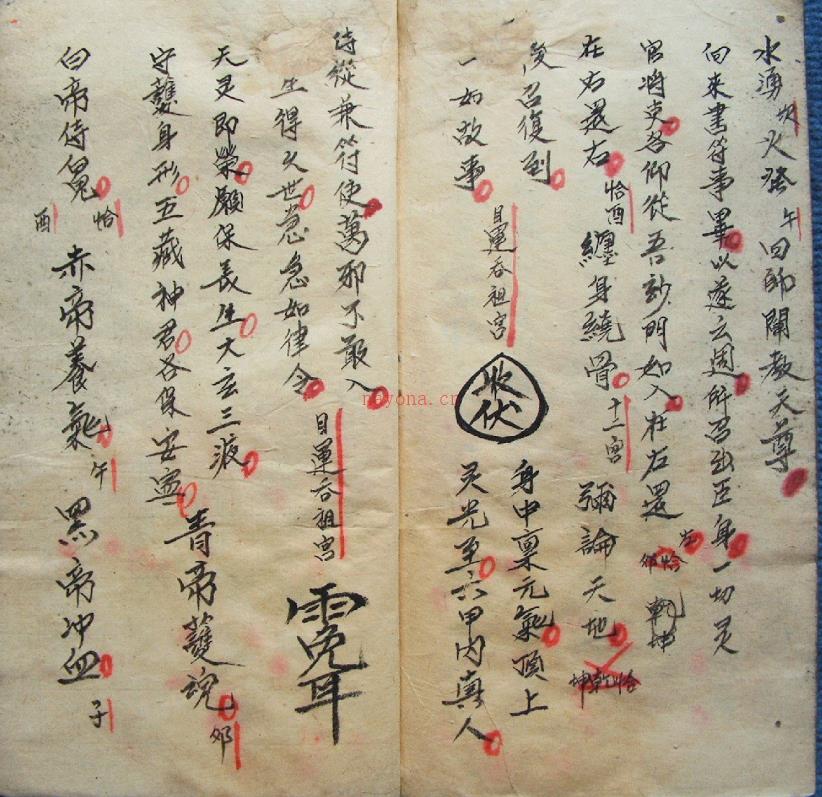 水湧坎火發午回師闡教天尊
向來書符事畢以遂云週所召出臣身一切灵
官將吏各仰從吾妙門如入在右還左恰卯乾坤
在右還右恰酉纏身繞骨十二宮彌論天地恰乾坤
後召復到
一如故事目運吞祖宮
收伏
身中禀元氣頂上
灵光至六甲内真人
侍從兼符使萬邪不敢入
生得久世急急如律令目運吞祖宮
天灵即榮願保長生大玄三液
守護身形五藏神君各保安寧青帝護魂卯
白帝侍鬼恰酉赤帝養氣午黑帝冲血子
nayona.cn